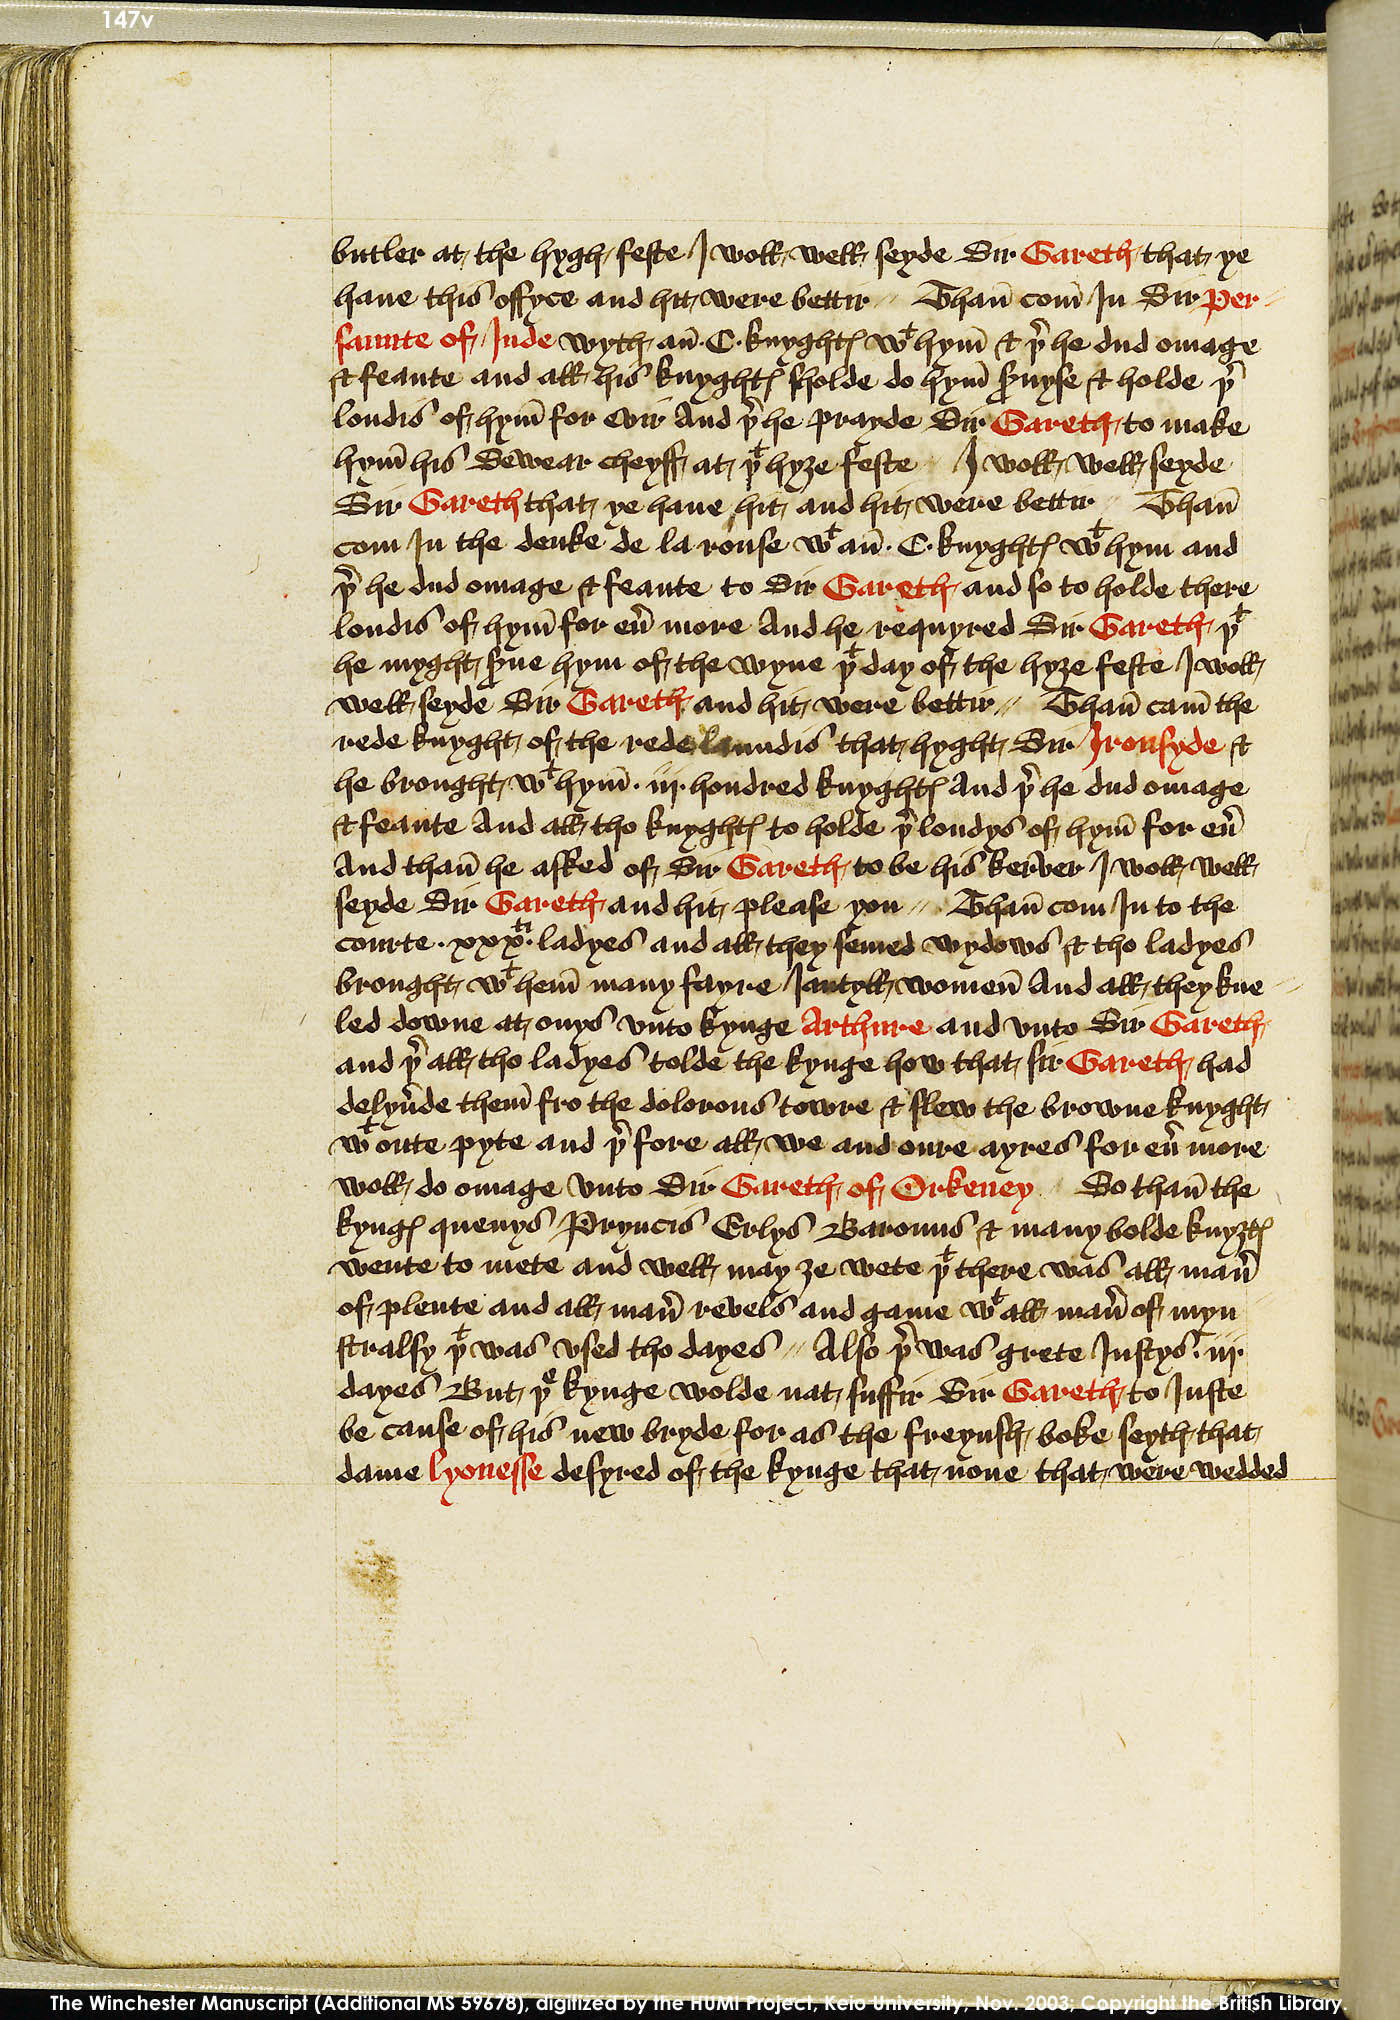 147v
butler at the hygh feste I woll well seyde Sir Gareth that ye
haue this offyce and hit were bettir // Than̄ com̄ In Sir Per
saunte of Inde wyth an̄ .C. knyghtꝭ wᵗ hym̄ & þr̄ he dud omage
& feaute and all his knyghtꝭ sholde do hym̄ s̄uyse & holde þr̄
londis of hym̄ for evir And þr̄ he prayde Sir Gareth to make
hym̄ his Sewear cheyff at þᵗ hyze feste I woll well seyde
Sir Gareth that ye haue hit and hit were bettir // Than̄
com In the deuke de la rouse wᵗ an̄ .C. knyghtꝭ wᵗ hym and
þr̄ he dud omage & feaute to Sir Gareth and so to holde there
londis of hym̄ for eū more And he requyred Sir Gareth þᵗ
he myght s̄ue hym of the wyne þᵗ day of the hyze feste I woll
well seyde Sir Gareth and hit were bettir // Than̄ cam̄ the
rede knyght of the rede laundis that hyght Sir Ironsyde &
he brought wᵗ hym̄ .iij. hondred knyghtꝭ And þr̄ he dud omage
& feaute And all tho knyghtꝭ to holde þr̄ londys of hym̄ for eū
And than̄ he asked of Sir Gareth to be his kerver I woll well
seyde Sir Gareth and hit please you // Than̄ com In to the
courte .xxxᵗⁱ. ladyes and all they semed wydows & tho ladyes
brought wᵗ hem̄ many fayre Jantyll women̄ And all they kne
led downe at onys vnto kynge Arthure and vnto Sir Gareth
and þr̄ all tho ladyes tolde the kynge how that sir Gareth had
delyūde them̄ fro the dolorous towre & slew the browne knyght
wᵗ oute pyte and þr̄ fore all we and oure ayres for eū more
woll do omage vnto Sir Gareth of Orkeney So than̄ the
kyngꝭ quenys Pryncis Erlys Barouns & many bolde knyztꝭ
wente to mete and well may ze wete þᵗ there was all man̄
of plente and all man̄ revels and game wᵗ all man̄ of myn
stralsy þᵗ was vsed tho dayes // Also þr̄ was grete Justys .iij.
dayes But þᵉ kynge wolde nat suffir Sir Gareth to Juste
be cause of his new bryde for as the freynsh boke seyth that
dame lyonesse desyred of the kynge that none that were wedded
The Winchester Manuscript (Additional MS 59678), digitized by the HUMI Project, Keio University, Nov. 2003; Copyright the British Library.